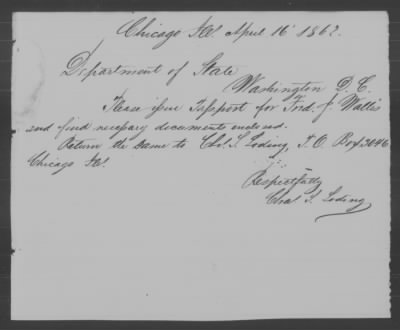 Chicago Ills. April 16' 1862.
Department of State
Washington D. C.
Please issue Passport for Fred. J. Wallis
and find necessary documents enclosed.
Return the same to Chs. S. Loding, P. O. Box 3046
Chicago Ills.
Respectfully
Chas. S. Loding